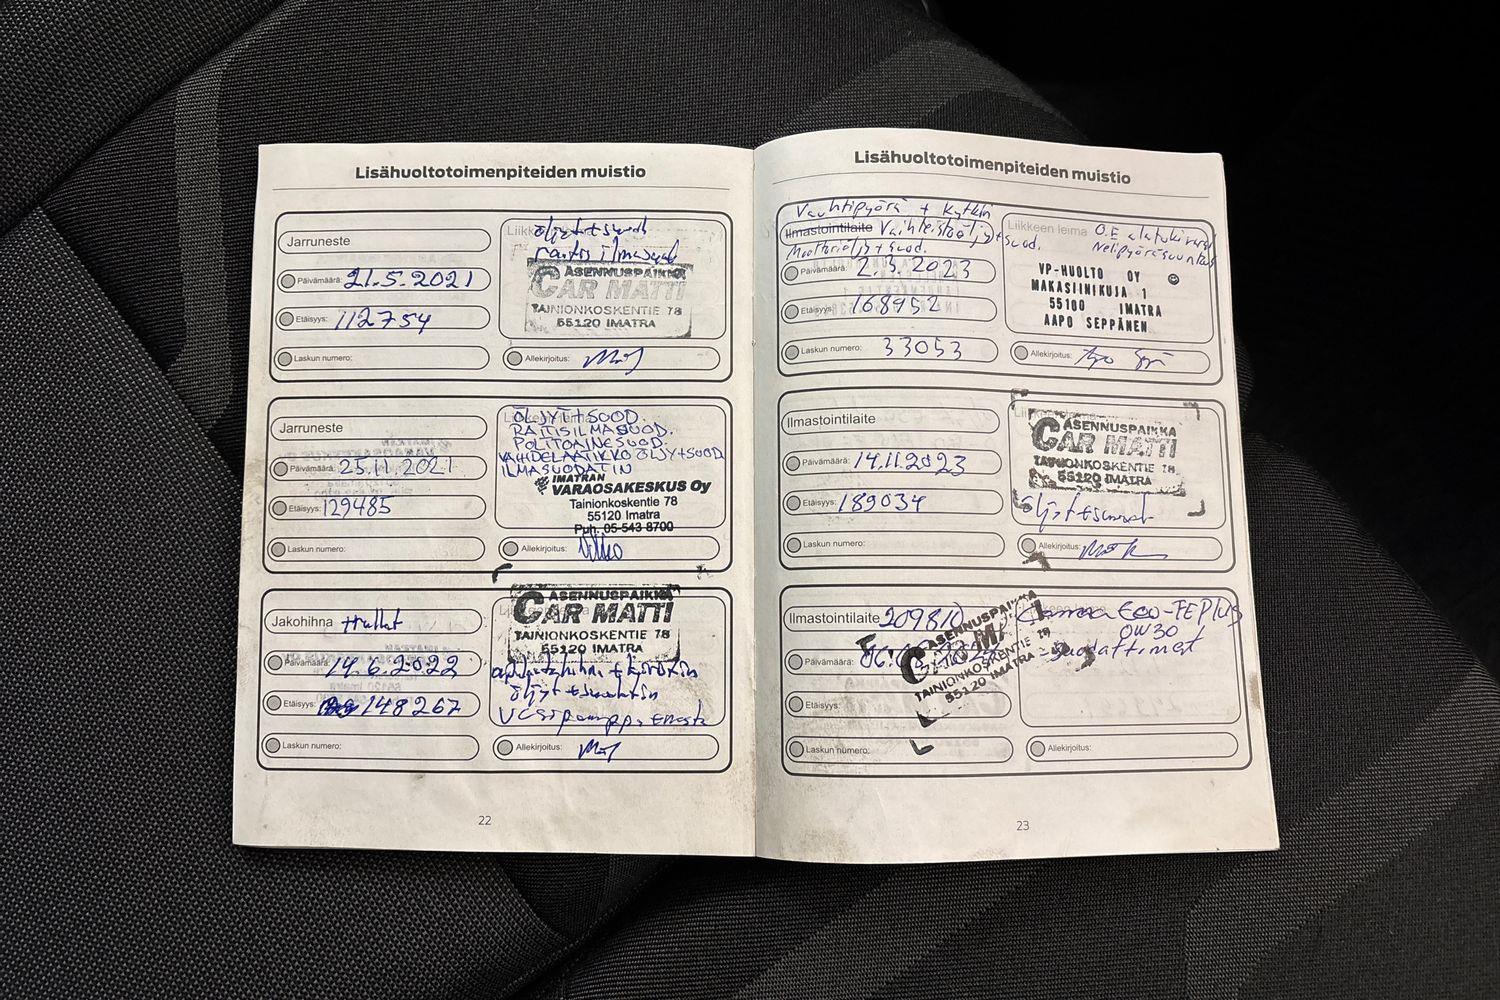 Lisähuoltotoimenpiteiden muistio
Jarruneste
Päivämäärä: 21.5.2021
Etäisyys: 112754
Laskun numero:
öljyt+suod
raitis ilmasuod
ASENNUSPAIKKA
CAR MATTI
TAINIONKOSKENTIE 78
55120 IMATRA
Allekirjoitus:
Jarruneste
Päivämäärä: 25.11.2021
Etäisyys: 129485
Laskun numero:
ÖLJYT+SUOD.
RAITISILMASUOD.
POLTTOAINESUOD.
VAIHDELAATIKKO ÖLJY+SUOD
ILMASUODATIN
IMATRAN
VARAOSAKESKUS Oy
Tainionkoskentie 78
55120 Imatra
Puh. 05-543 8700
Allekirjoitus:
Jakohihna
Päivämäärä: 14.6.2022
Etäisyys: 148267
Laskun numero:
ASENNUSPAIKKA
CAR MATTI
TAINIONKOSKENTIE 78
55120 IMATRA
öljyt+suodatin
Vesipumppu
Allekirjoitus:
22
Lisähuoltotoimenpiteiden muistio
Vauhtipyörä + Kytkin
Ilmastointilaite Vaihteistoöljy+suod.
Moottoriöljy+suod.
Päivämäärä: 2.3.2023
Etäisyys: 168952
Laskun numero: 33053
Liikkeen leima
O.E alatukivarsi
Nelipyöräsuuntaus
VP-HUOLTO OY
MAKASIINIKUJA 1
55100 IMATRA
AAPO SEPPÄNEN
Allekirjoitus:
Ilmastointilaite
Päivämäärä: 14.11.2023
Etäisyys: 189034
Laskun numero:
ASENNUSPAIKKA
CAR MATTI
TAINIONKOSKENTIE 78
55120 IMATRA
öljyt+suodat
Allekirjoitus:
Ilmastointilaite 209810
Päivämäärä:
Etäisyys:
Laskun numero:
ASENNUSPAIKKA
TAINIONKOSKENTIE 78
55120 IMATRA
Eco-FE Plus
0W30
-Suodattimet
Allekirjoitus:
23